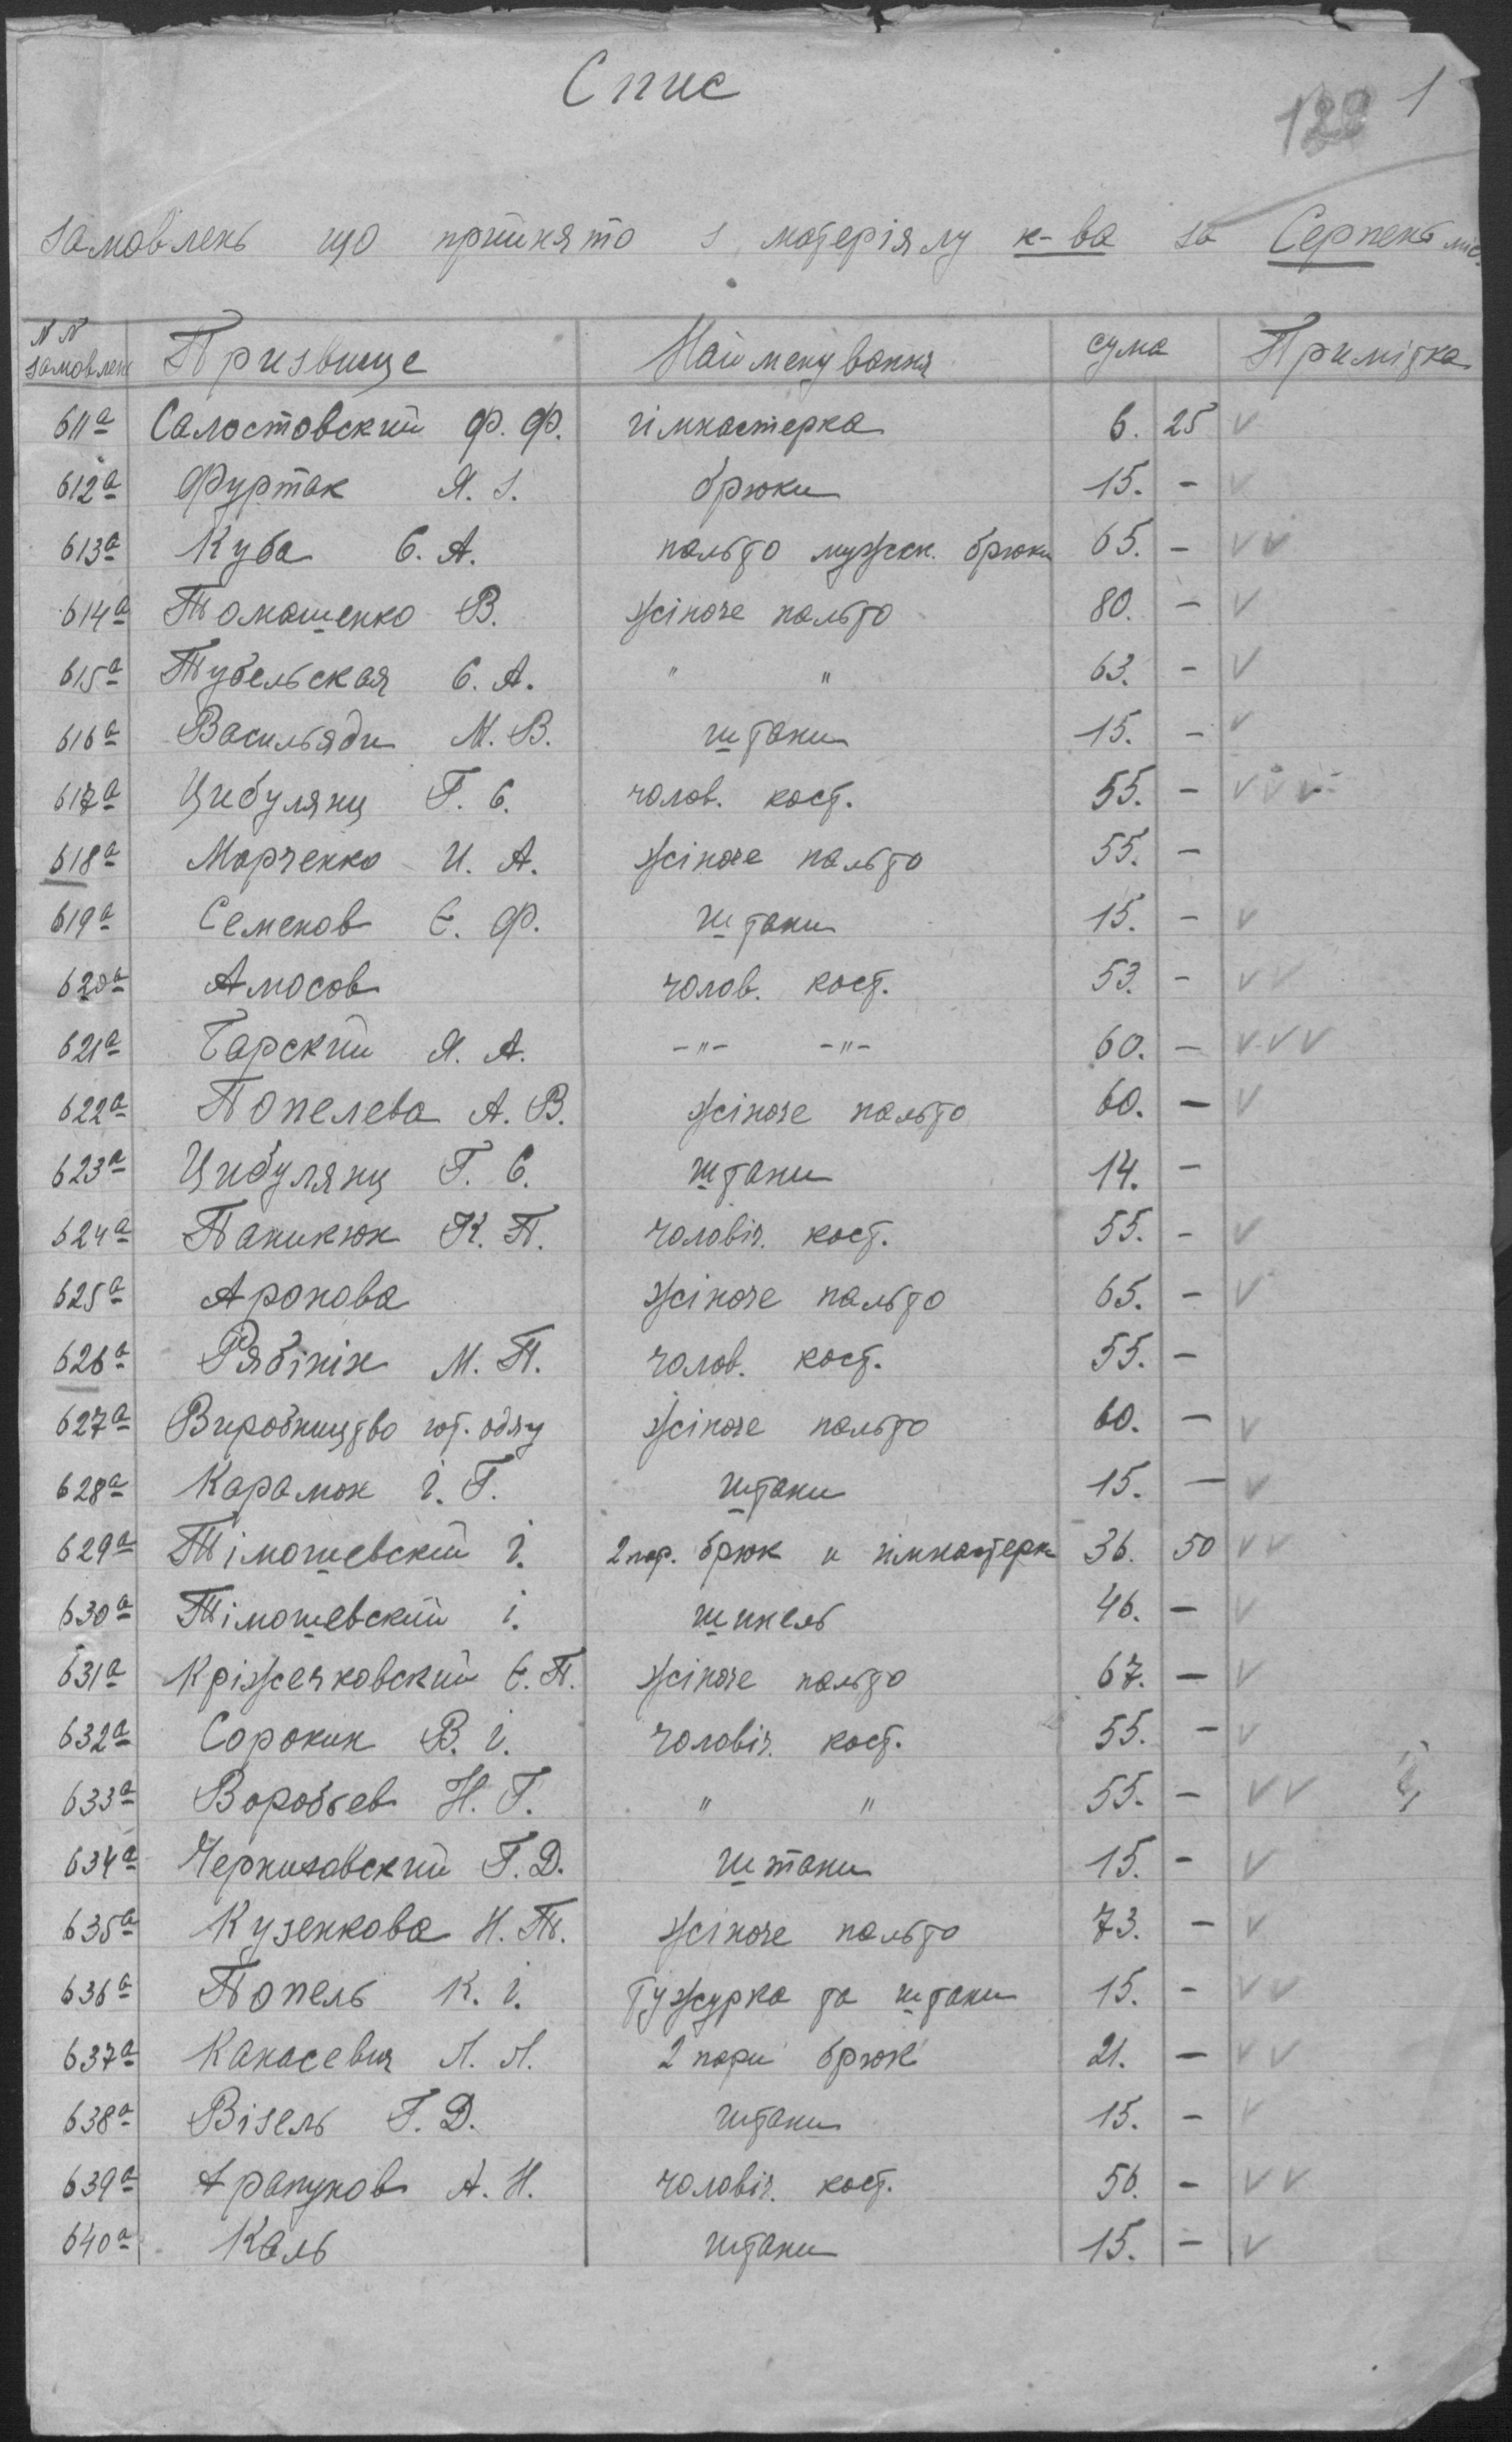 Спис
122 1
замовлень що прийнято з матеріялу к-ва за Серпень міс.
№ № замовлен Призвище Найменування сума Примітка
611а Салостовский Ф. Ф. гімнастерка 6. 25 v
612а Фуртак Я. З. брюки 15. - v
613а Куба Є. А. пальто мужск. брюки 65. - v v
614а Томашенко В. жіноче пальто 80. - v
615а Тубельская Є. А. " " 63. - v
616а Васильяди М. В. штани 15. - v
617а Цибулянц Г. Є. чолов. кост. 55. - v v v
618а Марченко И. А. жіноче пальто 55. -
619а Семенов Є. Ф. штани 15. - v
620а Амосов чолов. кост. 53. - v v
621а Барский Я. А. -"- -"- 60. - v v v
622а Попелева А. В. жіноче пальто 60. - v
623а Цибулянц Г. Є. штани 14. -
624а Паникюк К. П. чоловіч. кост. 55. - v
625а Аронова жіноче пальто 65. - v
626а Рябінін М. П. чолов. кост. 55. -
627а Виробництво гот. одягу жіноче пальто 60. - v
628а Карамон І. Г. штани 15. - v
629а Тімошевский І. 2 пар. брюк и гімнастерк 36. 50 v v
630а Тімошевский І. шинель 46. - v
631а Кріжечковский Є. П. жіноче пальто 67. - v
632а Сорокин В. І. чоловіч. кост. 55. - v
633а Воробьев Н. Г. " " 55. - v v
634а Чернизовский Г. Д. штани 15. - v
635а Кузенкова Н. Т. жіноче пальто 73. - v
636а Попель К. І. Тужурка та штани 15. - v v
637а Канасевич Л. Л. 2 пари брюк 21. - v v
638а Візель Г. Д. штани 15. - v
639а Арапунов А. Н. чоловіч. кост. 56. - v v
640а Каль штани 15. - v